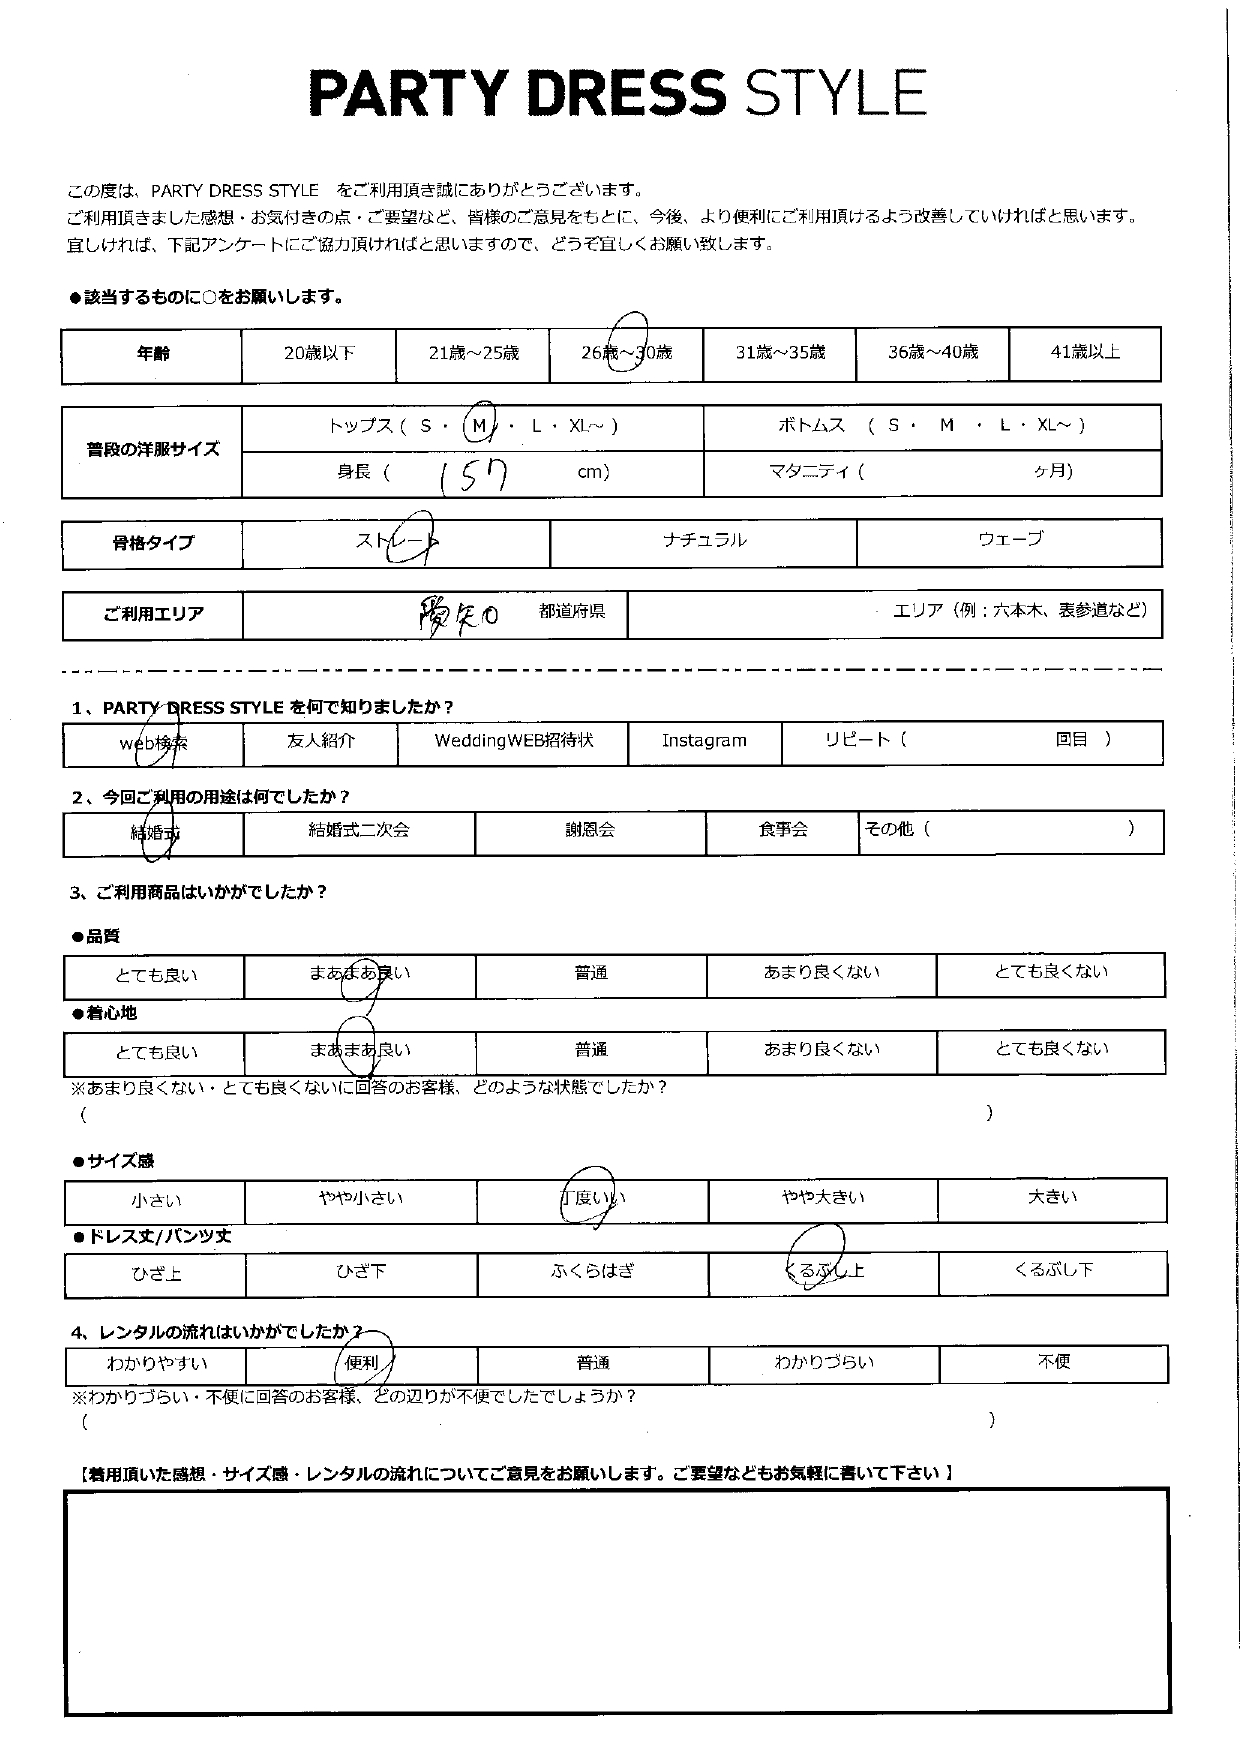 PARTY DRESS STYLE
この度は、PARTY DRESS STYLE をご利用頂き誠にありがとうございます。
ご利用頂きました感想・お気付きの点・ご要望など、皆様のご意見をもとに、今後、より便利にご利用頂けるよう改善していければと思います。
宜しければ、下記アンケートにご協力頂ければと思いますので、どうぞ宜しくお願い致します。
●該当するものに○をお願いします。
年齢 20歳以下 21歳～25歳 26歳～30歳 31歳～35歳 36歳～40歳 41歳以上
普段の洋服サイズ トップス ( S ・ M ・ L ・ XL～ ) ボトムス ( S ・ M ・ L ・ XL～ )
身長 ( 157 cm) マタニティ ( ヶ月)
骨格タイプ ストレート ナチュラル ウェーブ
ご利用エリア 愛知 都道府県 エリア（例：六本木、表参道など）
1、PARTY DRESS STYLE を何で知りましたか？
web検索 友人紹介 WeddingWEB招待状 Instagram リピート（ 回目 ）
2、今回ご利用の用途は何でしたか？
結婚式 結婚式二次会 謝恩会 食事会 その他（ ）
3、ご利用商品はいかがでしたか？
●品質
とても良い まあまあ良い 普通 あまり良くない とても良くない
●着心地
とても良い まあまあ良い 普通 あまり良くない とても良くない
※あまり良くない・とても良くないに回答のお客様、どのような状態でしたか？
（ ）
●サイズ感
小さい やや小さい 丁度いい やや大きい 大きい
●ドレス丈/パンツ丈
ひざ上 ひざ下 ふくらはぎ くるぶし上 くるぶし下
4、レンタルの流れはいかがでしたか？
わかりやすい 便利 普通 わかりづらい 不便
※わかりづらい・不便に回答のお客様、どの辺りが不便でしたでしょうか？
（ ）
【着用頂いた感想・サイズ感・レンタルの流れについてご意見をお願いします。ご要望などもお気軽に書いて下さい 】